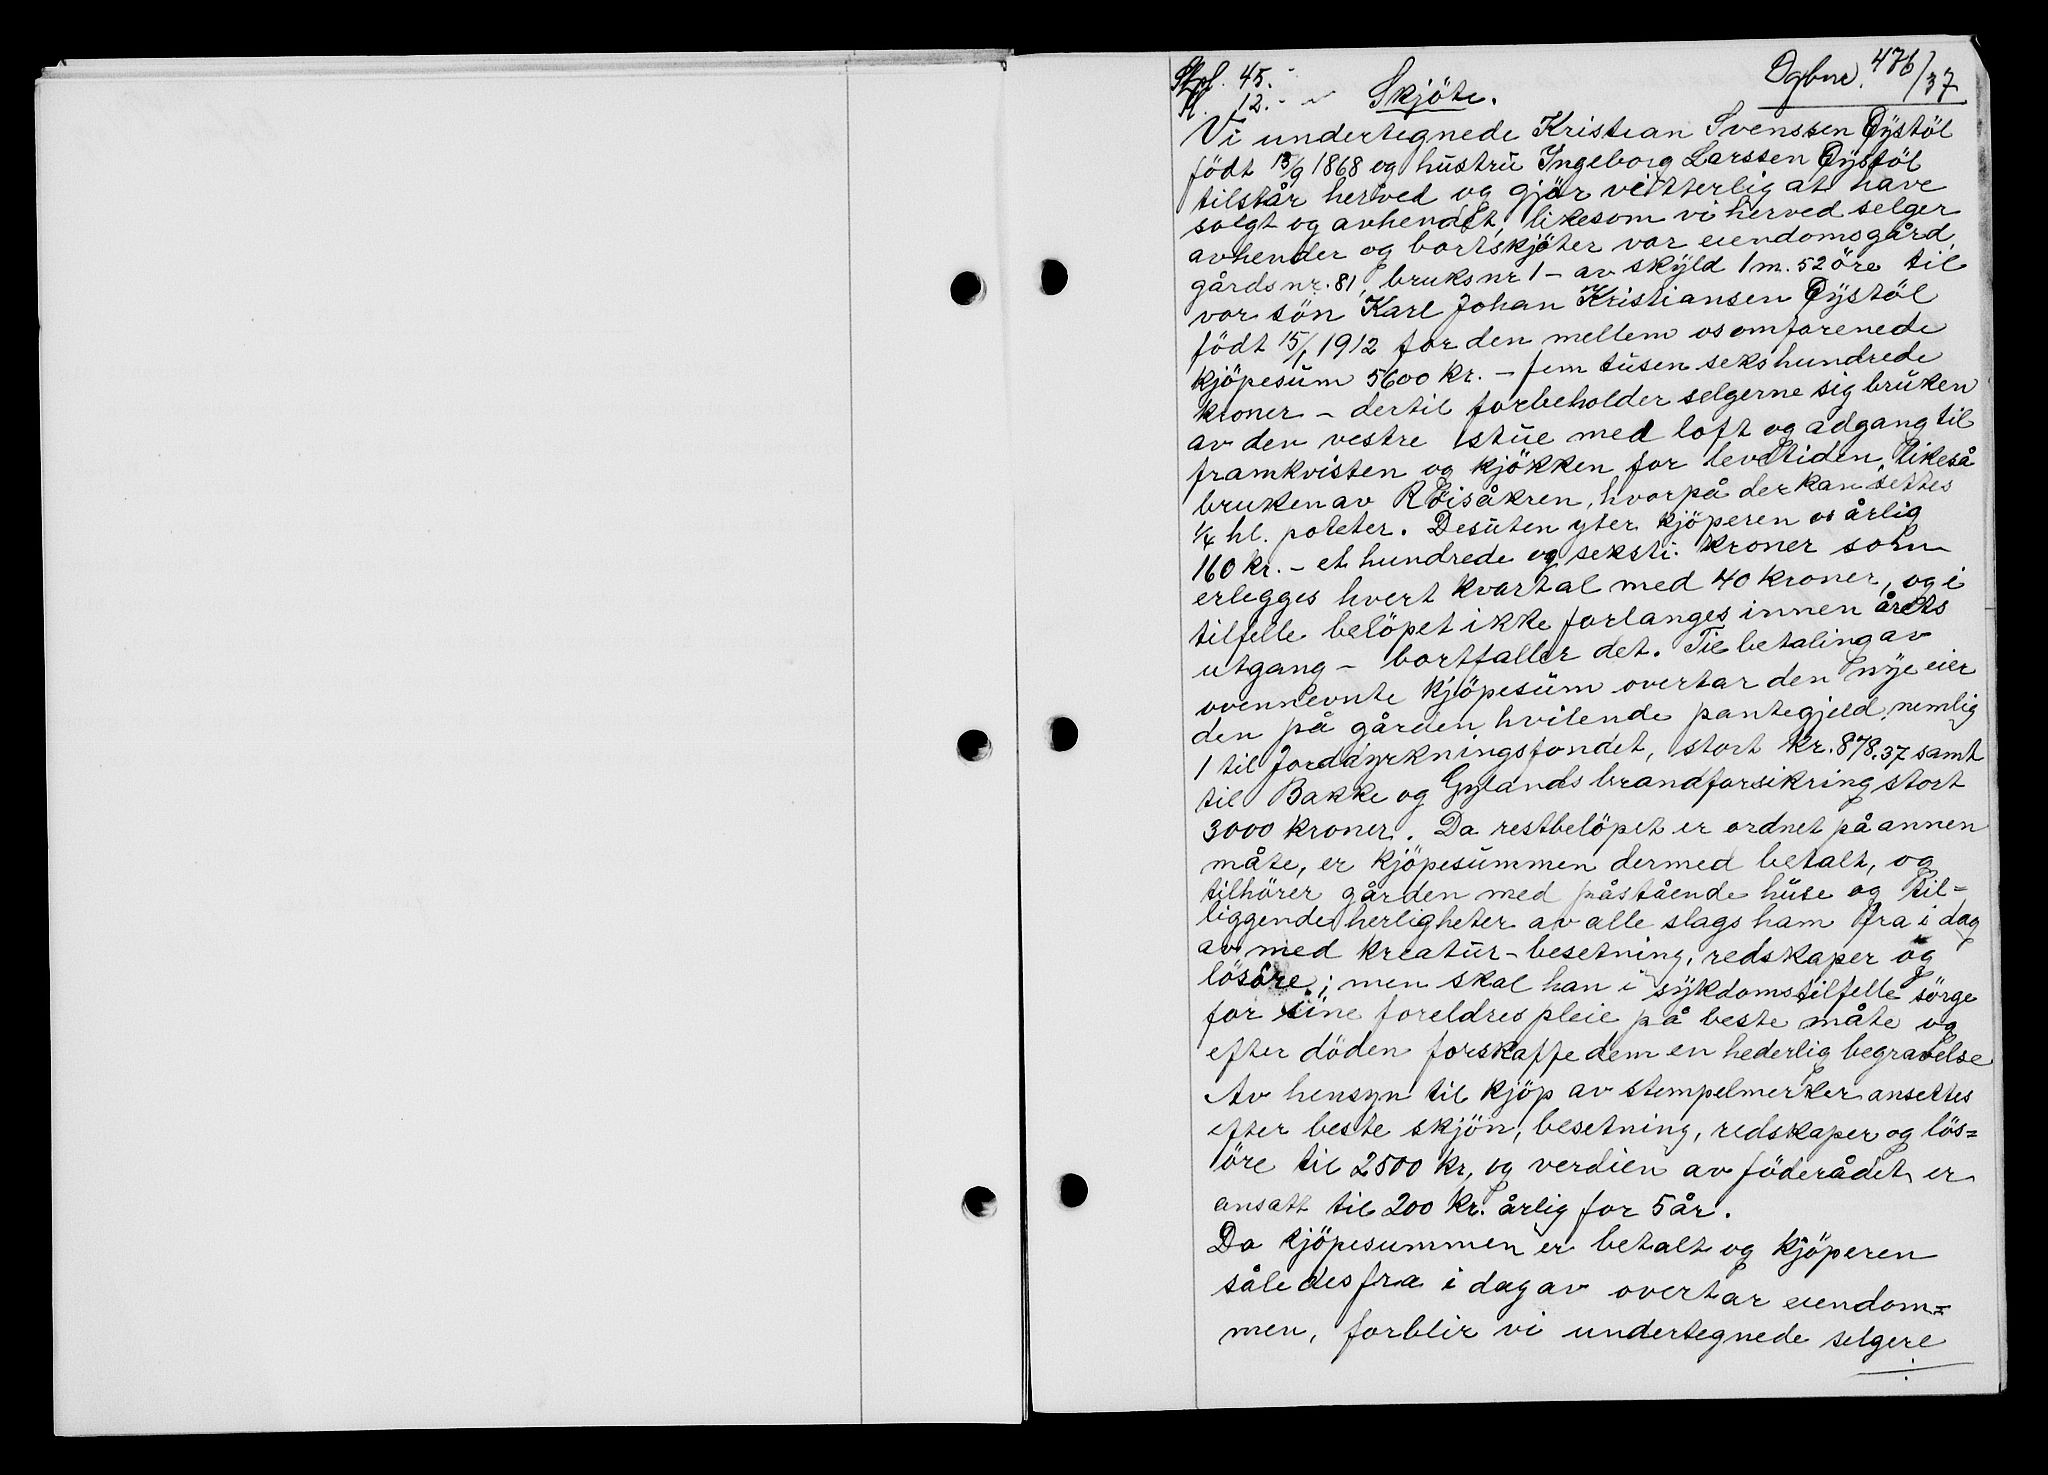 Stpl. 45.-
Dgbnr. 476/37
Gl. 12.-
Skjöte.
Vi undertegnede Kristian Svenssen Öystöl
födt 13/9 1868 og hustru Ingeborg Larssen Öystöl
tilstår herved og gjör vitterlig at have
solgt og avhendet, likesom vi herved selger
avhender og bortskjöter vor eiendomsgård
gårdsnr. 81, bruksnr 1 - av skyld 1 m. 52 öre til
vor sön Karl Johan Kristiansen Öystöl
födt 15/1 1912 for den mellem os omforenede
kjöpesum 5600 kr. - fem tusen sekshundrede
kroner - dertil forbeholder selgerne sig bruken
av den vestre stue med loft og adgang til
framkvisten og kjökken for levetiden, likeså
bruken av Röisåkren, hvorpå der kan settes
1/4 hl. poteter. Desuten yter kjöperen os årlig
160 kr. - et hundrede og seksti kroner som
erlegges hvert kvartal med 40 kroner, og i
tilfelle belöpet ikke forlanges innen årets
utgang - bortfaller det. Til betaling av
ovennevnte kjöpesum overtar den nye eier
den på gården hvilende pantegjeld, nemlig
1 til Jorddyrkningsfondet, stort kr. 878.37 samt
til Bakke og Gylands brandforsikring stort
3000 kroner. Da restbelöpet er ordnet på annen
måte, er kjöpesummen dermed betalt, og
tilhörer gården med påstående huse og til-
liggende herligheter av alle slags ham fra i dag
av med kreatur-besetning, redskaper og
lösöre; men skal han i sykdomstilfelle sörge
for sine foreldres pleie på beste måte og
efter döden forskaffe dem en hederlig begravelse
Av hensyn til kjöp av stempelmerker ansettes
efter beste skjön, besetning, redskaper og lös=
öre til 2500 kr, og verdien av föderådet er
ansatt til 200 kr. årlig for 5 år.
Da kjöpesummen er betalt og kjöperen
således fra i dag av overtar eiendom=
men, forblir vi undertegnede selgere